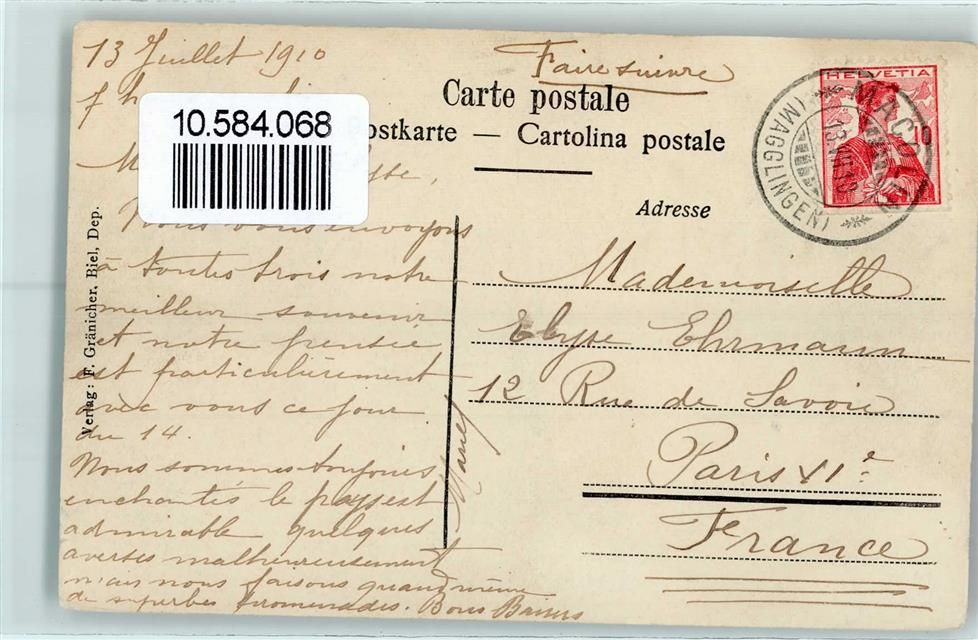 13 Juillet 1910
Faire suivre
7 h
Carte postale
Postkarte — Cartolina postale
10.584.068
HELVETIA
10
MAC
(MAGGLINGEN)
13.VII.10
Adresse
Nous vous envoyons
à toutes trois notre
meilleur souvenir
et notre pensée
est particulièrement
avec vous ce jour
du 14.
Nous sommes toujours
enchantés le pays est
admirable quelques
averses malheureusement
mais nous faisons quand même
de superbes promenades. Bons Baisers
Marcel
Mademoiselle
Elyse Ehrmann
12 Rue de Savoie
Paris XIe
France
Verlag: F. Gränicher, Biel, Dep.